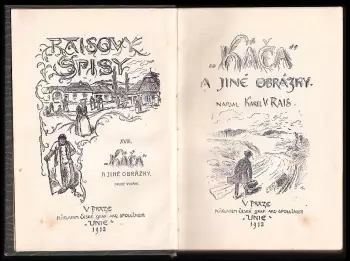 RAISOVY
SPISY
XVII.
"KÁČA"
A JINÉ OBRÁZKY.
V PRAZE
NÁKLADEM ČESKÉ GRAF. AKC. SPOLEČNOSTI
"UNIE"
1912
"KÁČA"
A JINÉ OBRÁZKY.
NAPSAL KAREL V. RAIS.
V PRAZE
NÁKLADEM ČESKÉ GRAF. AKC. SPOLEČNOSTI
"UNIE"
1912